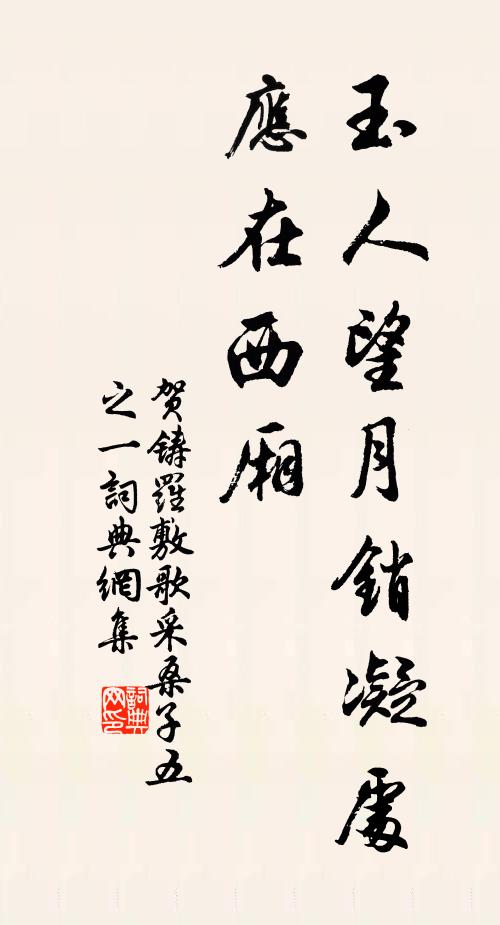 玉人望月銷凝處
應在西廂
賀鑄羅敷歌采桑子五
之一詞典網集
詞典
网印